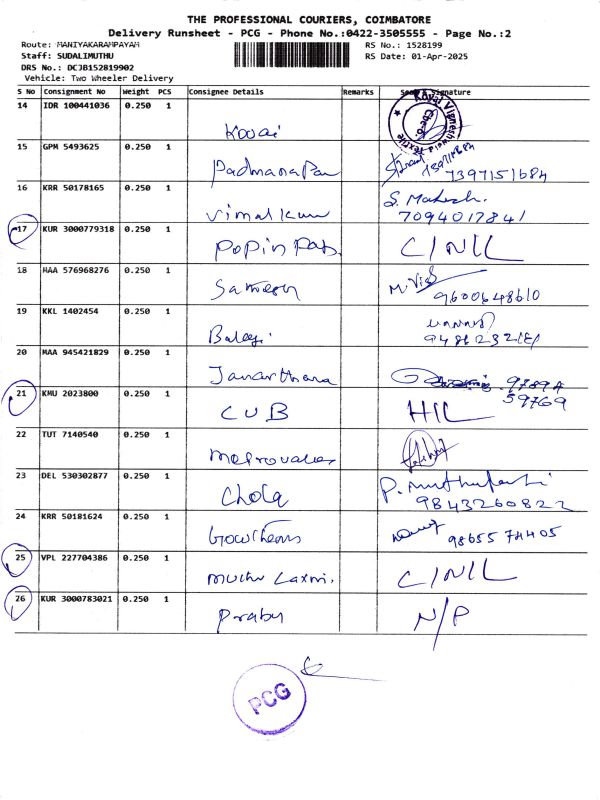 THE PROFESSIONAL COURIERS, COIMBATORE
Delivery Runsheet - PCG - Phone No.:0422-3505555 - Page No.:2
Route: MANIYAKARAMPAYAM RS No.: 1528199
Staff: SUDALIMUTHU RS Date: 01-Apr-2025
DRS No.: DCJB152819902
Vehicle: Two Wheeler Delivery
S No Consignment No Weight PCS Consignee Details Remarks Seal & Signature
14 IDR 100441036 0.250 1
Kovai
15 GPM 5493625 0.250 1
7397151684
16 KRR 50178165 0.250 1 S. Mahesh.
Vimal Kum 7094017841
17 KUR 3000779318 0.250 1
C/NIL
18 MAA 576968276 0.250 1
9600648610
19 KKL 1402454 0.250 1
Balaji
20 MAA 945421829 0.250 1
Janarthana 9789A
21 KMU 2023800 0.250 1 59769
CUB HIL
22 TUT 7140540 0.250 1
23 DEL 530302877 0.250 1
Chola 9843260822
24 KRR 50181624 0.250 1
25 VPL 227704386 0.250 1
Muthu Laxmi. C/NIL
26 KUR 3000783021 0.250 1
Prabu N/P
PCG